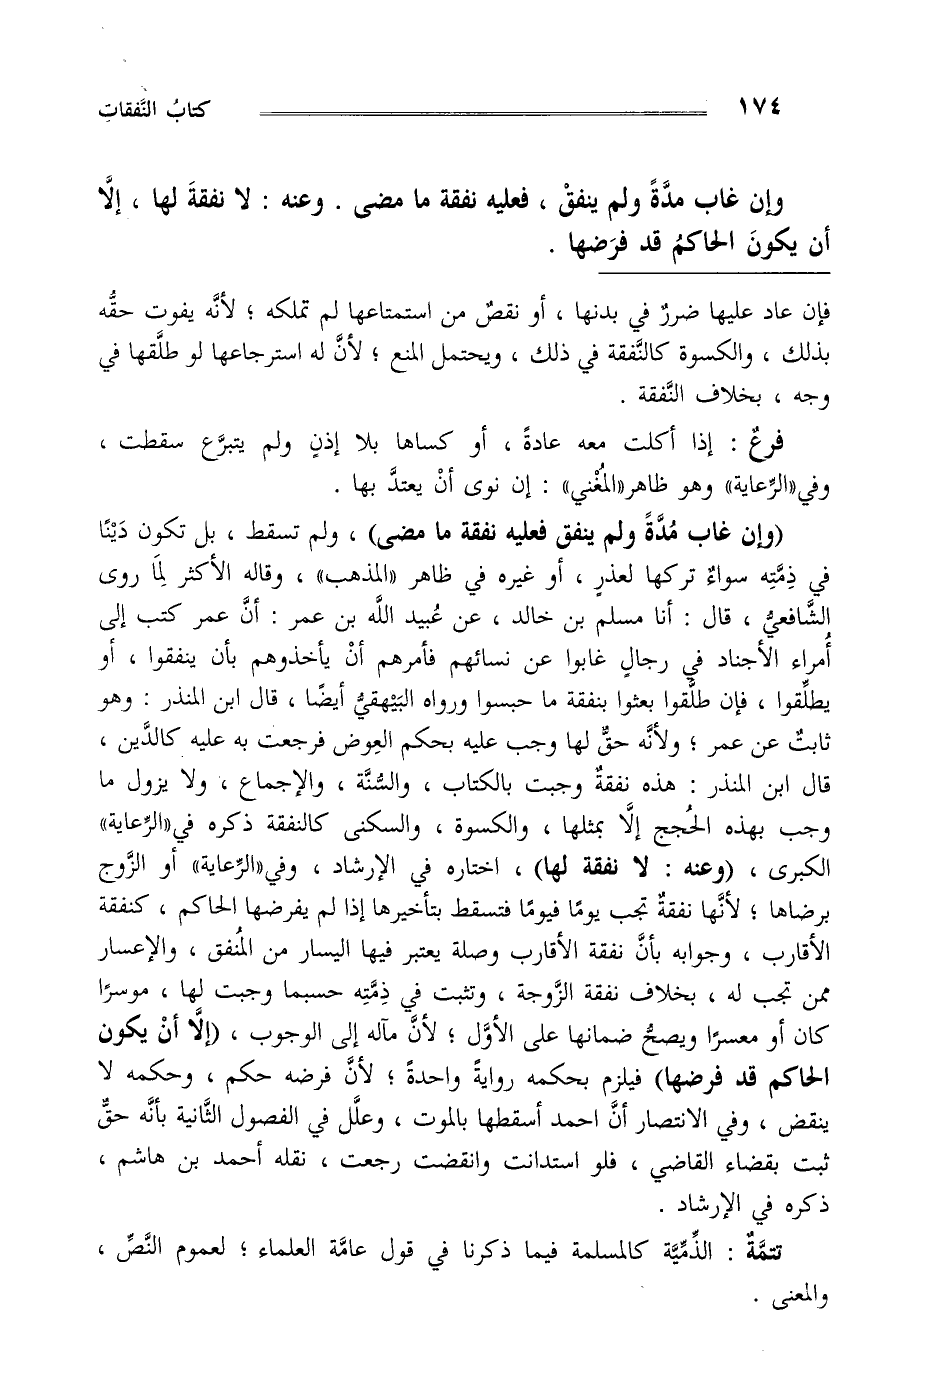 ١٧٤ كتابُ النَّفقاتِ
وإن غاب مدَّةً ولم ينفقْ ، فعليه نفقة ما مضى . وعنه : لا نفقةَ لها ، إلَّا
أن يكونَ الحاكمُ قد فرَضها .
فإن عاد عليها ضررٌ في بدنها ، أو نقصٌ من استمتاعها لم تملكه ؛ لأنَّه يفوت حقُّه
بذلك ، والكسوة كالنَّفقة في ذلك ، ويحتمل المنع ؛ لأنَّ له استرجاعها لو طلَّقها في
وجه ، بخلاف النَّفقة .
فرعٌ : إذا أكلت معه عادةً ، أو كساها بلا إذنٍ ولم يتبرَّع سقطت ،
وفي«الرِّعاية» وهو ظاهر«المُغْني» : إن نوى أنْ يعتدَّ بها .
(وإن غاب مُدَّةً ولم ينفق فعليه نفقة ما مضى) ، ولم تسقط ، بل تكون دَيْنًا
في ذِمَّتِه سواءٌ تركها لعذرٍ ، أو غيره في ظاهر «المذهب» ، وقاله الأكثر لِمَا روى
الشَّافعيُّ ، قال : أنا مسلم بن خالد ، عن عُبيد اللَّه بن عمر : أنَّ عمر كتب إلى
أُمراء الأجناد في رجالٍ غابوا عن نسائهم فأمرهم أنْ يأخذوهم بأن ينفقوا ، أو
يطلِّقوا ، فإن طلَّقوا بعثوا بنفقة ما حبسوا ورواه البَيْهقيُّ أيضًا ، قال ابن المنذر : وهو
ثابتٌ عن عمر ؛ ولأنَّه حقٌّ لها وجب عليه بحكم العِوض فرجعت به عليه كالدَّين ،
قال ابن المنذر : هذه نفقةٌ وجبت بالكتاب ، والسُّنَّة ، والإجماع ، ولا يزول ما
وجب بهذه الحُجج إلَّا بمثلها ، والكسوة ، والسكنى كالنفقة ذكره في«الرِّعاية»
الكبرى ، (وعنه : لا نفقة لها) ، اختاره في الإرشاد ، وفي«الرِّعاية» أو الزَّوج
برضاها ؛ لأنَّها نفقةٌ تجب يومًا فيومًا فتسقط بتأخيرها إذا لم يفرضها الحاكم ، كنفقة
الأقارب ، وجوابه بأنَّ نفقة الأقارب وصلة يعتبر فيها اليسار من المُنفق ، والإعسار
ممن تجب له ، بخلاف نفقة الزَّوجة ، وتثبت في ذِمَّتِه حسبما وجبت لها ، موسرًا
كان أو معسرًا ويصحُّ ضمانها على الأوَّل ؛ لأنَّ مآله إلى الوجوب ، (إلَّا أنْ يكون
الحاكم قد فرضها) فيلزم بحكمه روايةً واحدةً ؛ لأنَّ فرضه حكم ، وحكمه لا
ينقض ، وفي الانتصار أنَّ احمد أسقطها بالموت ، وعلَّل في الفصول الثَّانية بأنَّه حقٌّ
ثبت بقضاء القاضي ، فلو استدانت وانقضت رجعت ، نقله أحمد بن هاشم ،
ذكره في الإرشاد .
تتمَّةٌ : الذِّمِّيَّة كالمسلمة فيما ذكرنا في قول عامَّة العلماء ؛ لعموم النَّصِّ ،
والمعنى .